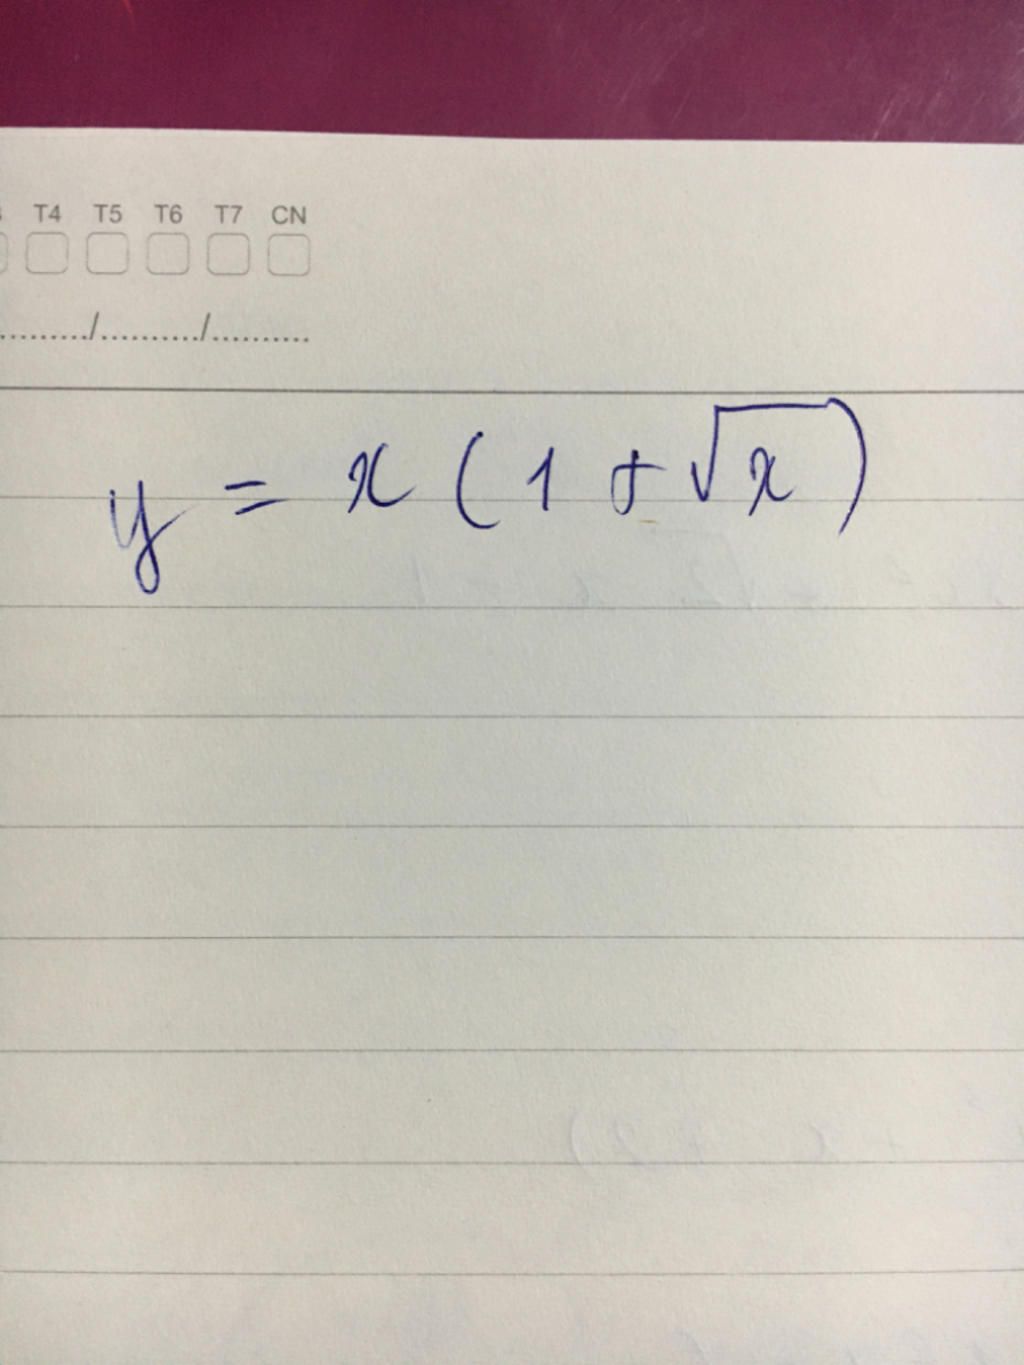 T4 T5 T6 T7 CN
........./........../..........
y = x (1 + √x)